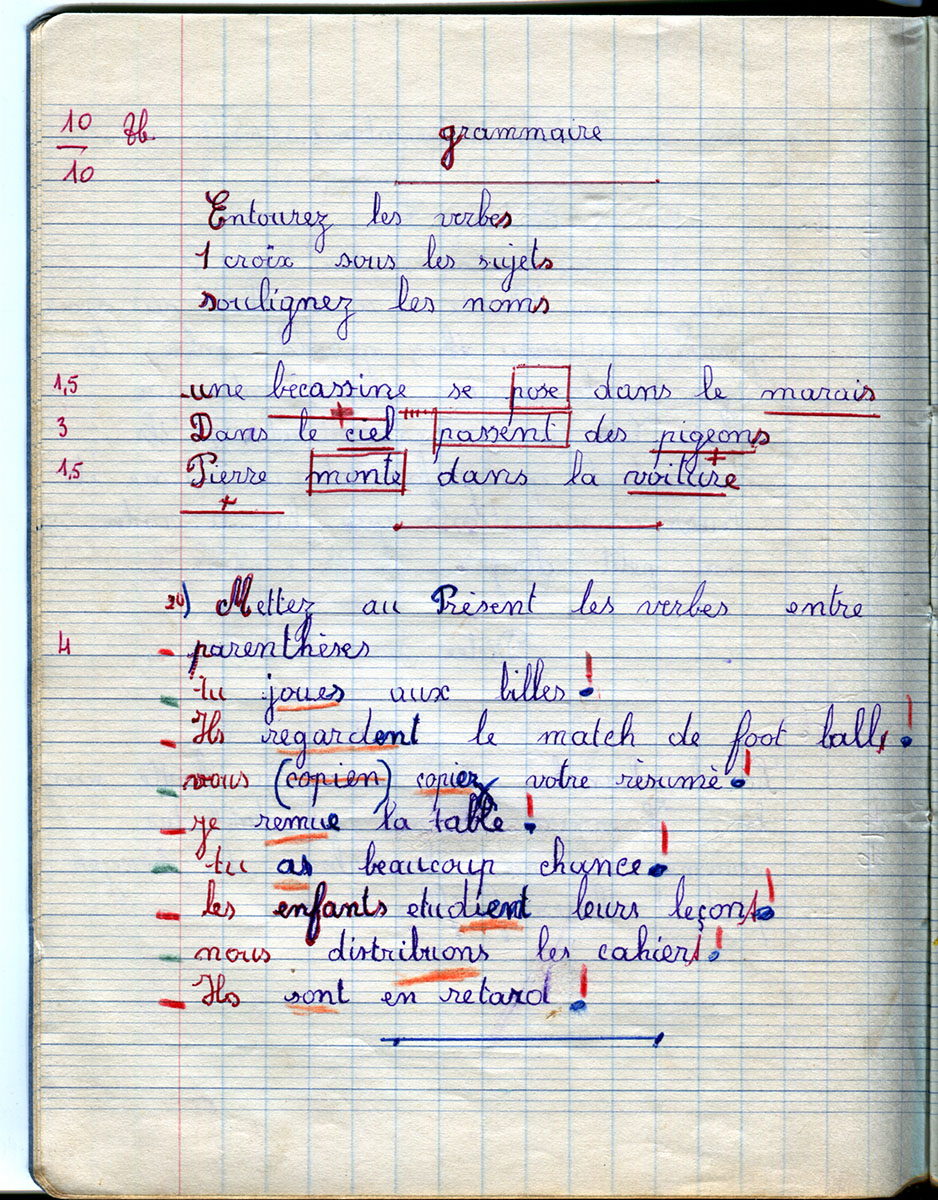 10 Tb grammaire
10
Entourez les verbes
1 croix sous les sujets
soulignez les noms
1,5 une becassine se pose dans le marais
3 Dans le ciel passent des pigeons
1,5 Pierre monte dans la voiture
2°) Mettez au Présent les verbes entre
4 - parenthèses
- tu joues aux billes !
- Ils regardent le match de foot ball !
- vous (copien) copiez votre résumé !
- je remue la table !
- tu as beaucoup chance !
- les enfants etudient leurs leçons !
- nous distribuons les cahiers !
- Ils sont en retard !